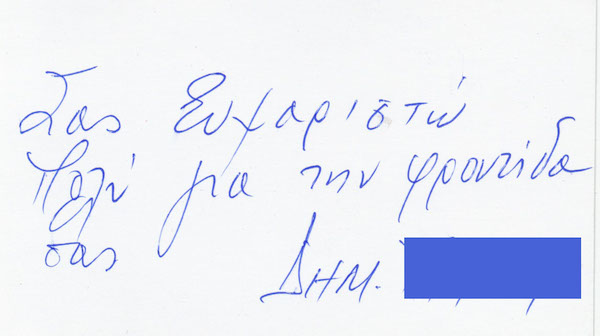 Σας Ευχαριστώ
πολύ για την φροντίδα
σας
ΔΗΜ.